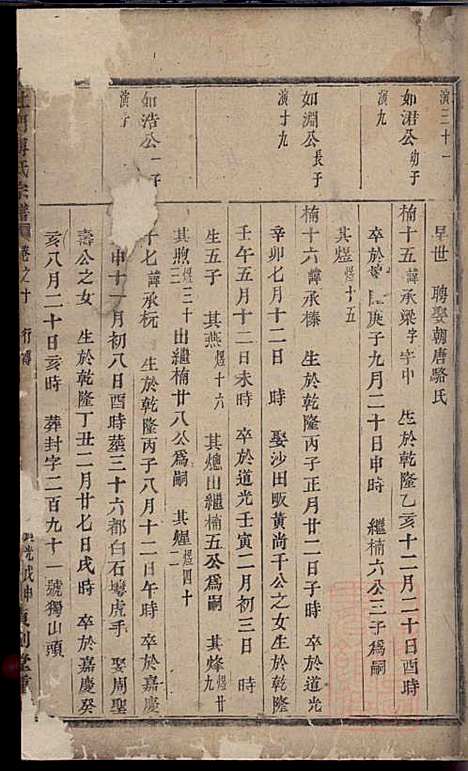 演三十一
早世 聘娶朝唐駱氏
如涒公幼子
演九
楠十五諱承梁字字中 生於乾隆乙亥十二月二十日酉時
卒於 庚子九月二十日申時 繼楠六公三子為嗣
其煋煜十五
如淵公長子
演十九
楠十六諱承榛 生於乾隆丙子正月廿二日子時 卒於道光
辛卯七月十二日 時 娶沙田畈黃尚千公之女生於乾隆
壬午五月十二日未時 卒於道光壬寅二月初三日 時
生五子 其燕煜十六 其熜出繼楠五公為嗣 其烽煜廿九
其煦煜三十三出繼楠廿八公為嗣 其煋煜四十二
如浩公一子
演十
十七諱承杬 生於乾隆丙子八月十二日午時 卒於嘉慶
申十一月初八日酉時葬三十六都白石塢虎手 娶周聖
壽公之女 生於乾隆丁丑二月廿七日戌時 卒於嘉慶癸
亥八月二十日亥時 葬封字二百九十一號獨山頭
氏宗譜 卷之十 行傳 光戊申 重